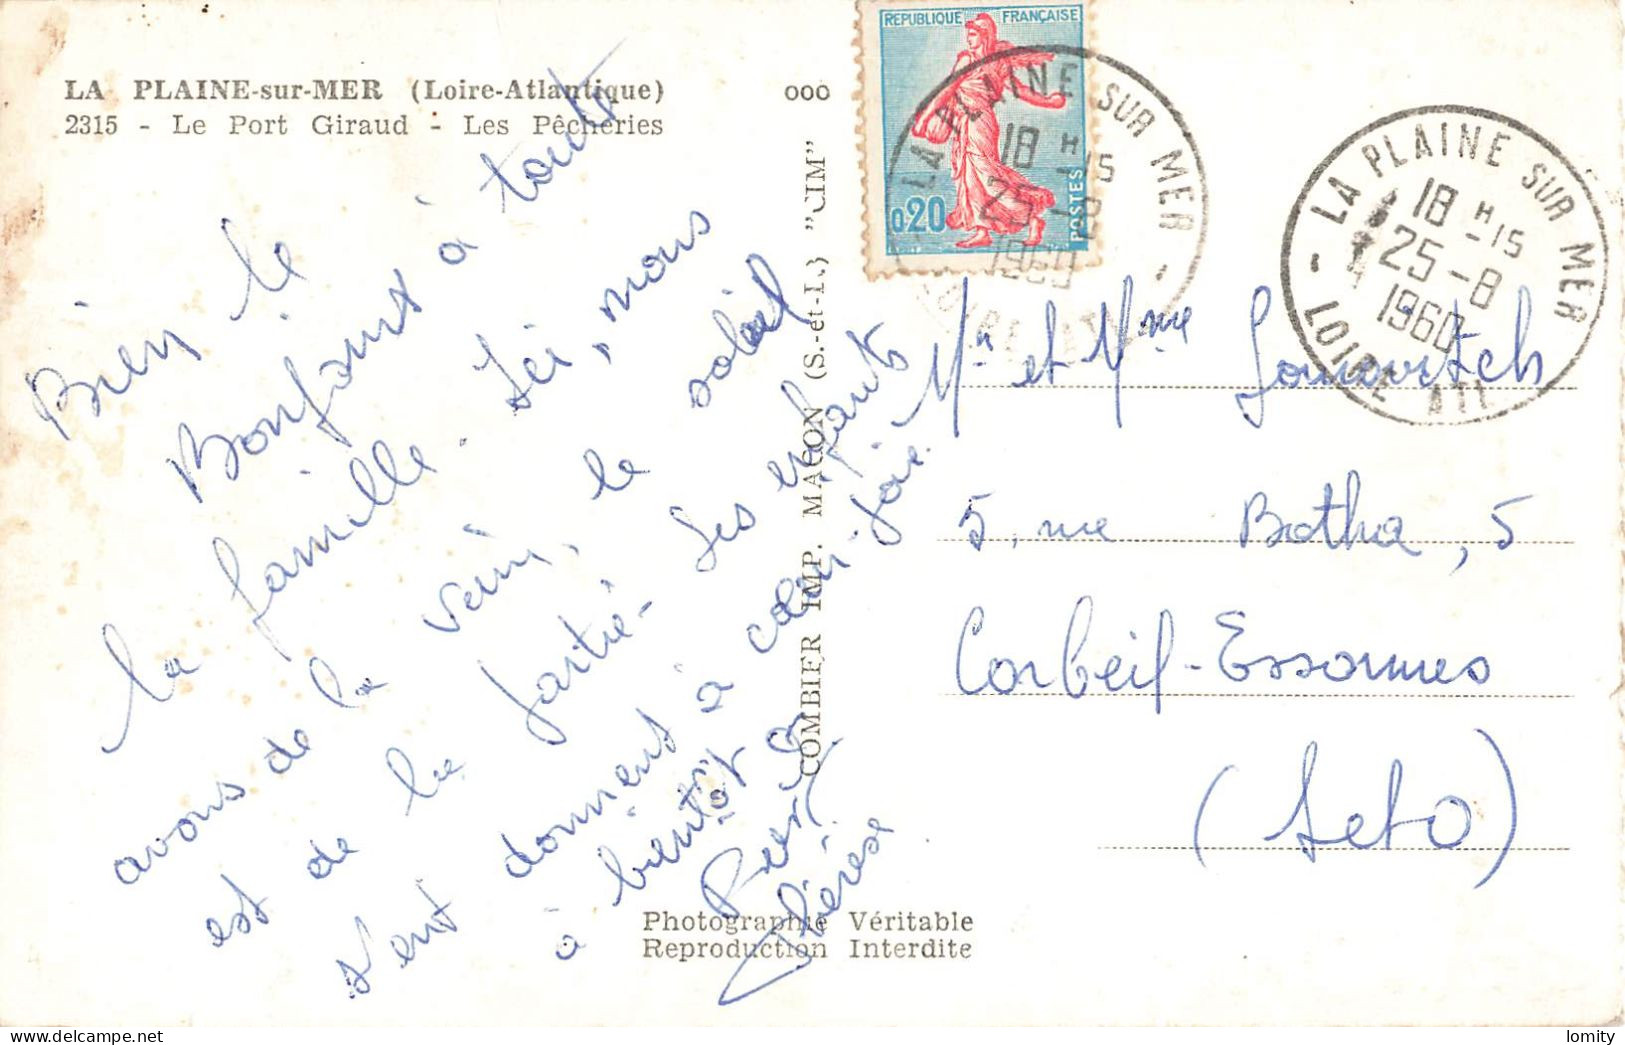 LA PLAINE-sur-MER (Loire-Atlantique)
2315 - Le Port Giraud - Les Pêcheries
ooo
REPUBLIQUE FRANÇAISE
0,20
POSTES
LA PLAINE SUR MER
18 H -15
25 -8
1960
LOIRE ATL
LA PLAINE SUR MER
18 H -15
25 -8
1960
LOIRE ATL
Bien le
Bonjour à toute
la famille. Ici, nous
avons de la veine, le soleil
est de la partie - Les enfants
s'en donnent à cœur joie.
à bientôt
Pierre
Thérèse
COMBIER IMP. MACON (S.-et-L.) "CIM"
Mr et Mme
5, rue Botha, 5
Corbeil-Essonnes
(SetO)
Photographie Véritable
Reproduction Interdite
lomity